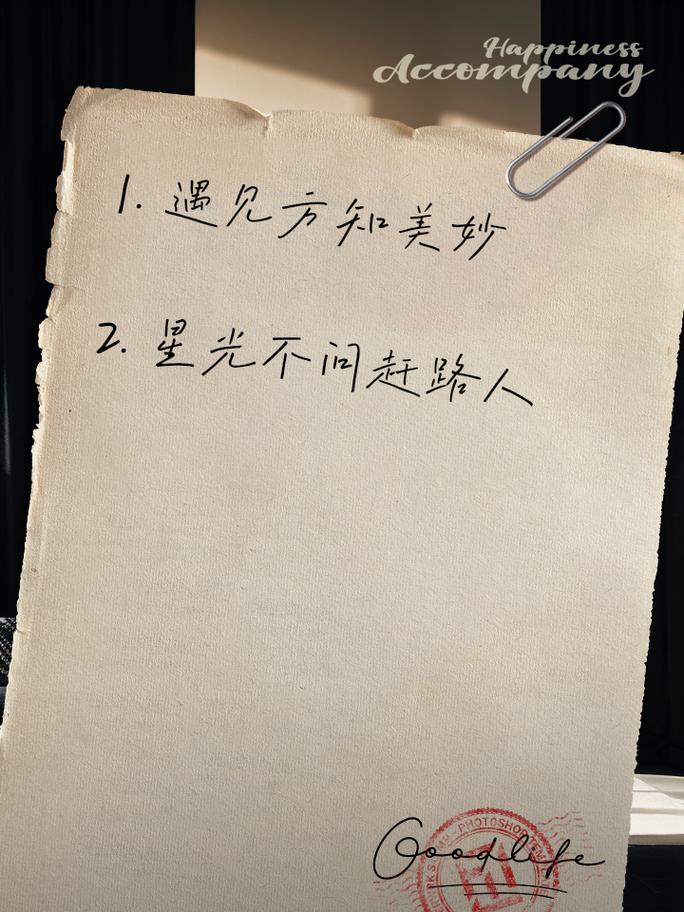 Happiness
Accompany
1. 遇见方知美妙
2. 星光不问赶路人
Goodlife
PHOTOSHOP